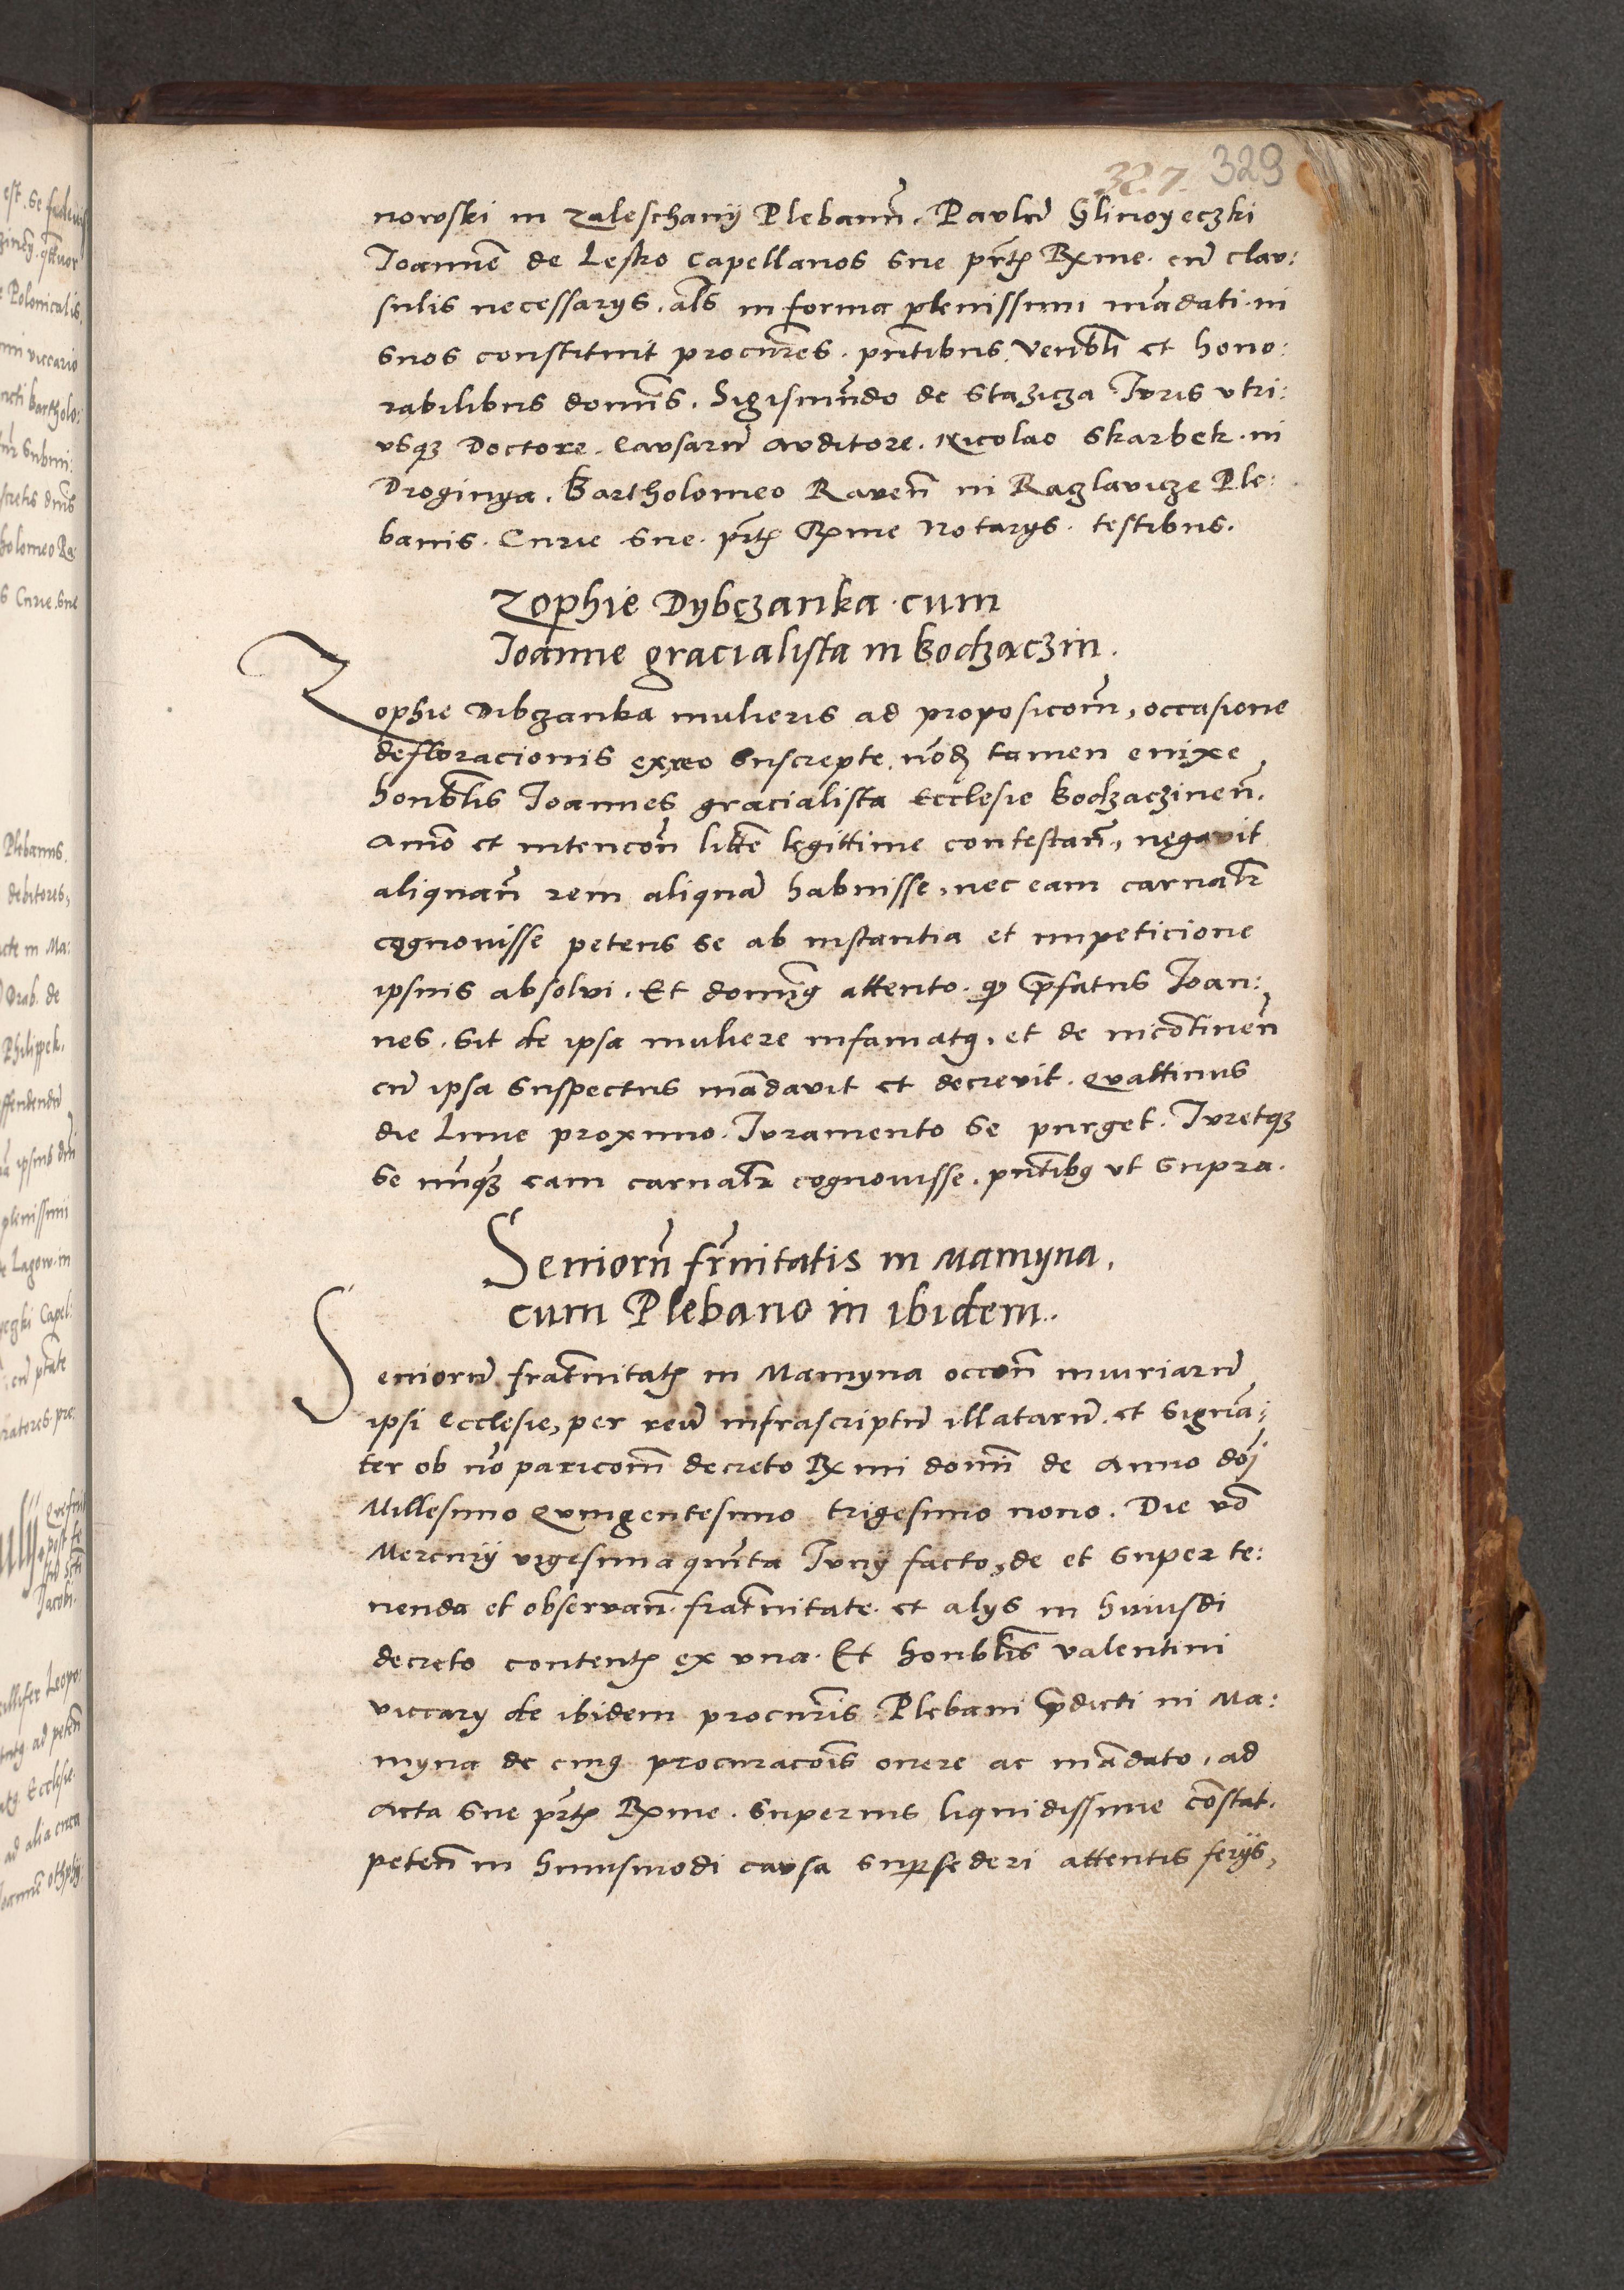 327. 329
nowski in Zaleschany Plebanū. Paulū Glinoyeczki
Ioannē de Lesko Capellanos sue pr̄tꝭ Rx̄me. cū clau:
sulis necessarys. al̄s in forma plenissimi mādati. in
suos constituit procūres. pn̄tibus. Venbl̄i et hono:
rabilibus domīs. Sigismūdo de Stazicza Iuris vtri:
vsqꝫ Doctore. Causarū auditore. Nicolao Skarbek. in
Droginya. Bartholomeo Raven̄ in Raczlavicze Ple:
banis. Curie sue pr̄tꝭ Rx̄me Notarys. testibus.
Zophie Dybczanka. cum
Ioanne gracialista in Bodzaczin.
Zophie Dibczanka mulieris ad proposicom̄, occasione
defloracionis ex reo suscepte, nōdꝫ tamen enixe
honbl̄is Ioannes gracialista Ecclesie Bodzaczinen̄.
Animo et intencon̄ litē legittime contestan̄, negavit
aliquam̄ rem aliquā habuisse, nec eam carnalr̄
cognovisse petens se ab instantia et impeticione
ipsius absolvi. Et domin9 attento. qꝫ p̄fatus Ioan:
nes. sit de ipsa muliere infamat9, et de incōtinen̄
cū ipsa suspectus mādavit et decrevit. quattinus
die Lune proximo. Iuramento se purget. Iuretqꝫ
se nūqꝫ eam carnalr̄ cognovisse. pn̄tib9 vt supra.
Seniorū fr̄nitatis in Mamyna,
cum Plebano in ibidem.
Seniorū frat̄nitatꝭ in Mamyna occon̄ iniuriarū
ipsi Ecclesie, per reū infrascriptū illatarū. et signā:
ter ob nō paricom̄ decreto Rx̄mi domī de Anno dōi
Millesimo Quingentesimo trigesimo nono. Die vō
Mercurij vigesima quīta Iunij facto, de et super te:
nenda et observan̄. frat̄nitate. et alys in huiusdi
decreto contentꝭ ex una. Et honbl̄is Valentini
viccary de ibidem procūris Plebani p̄dicti in Ma:
myna de cui9 procuracōis onere ac mādato, ad
Acta sue pr̄tꝭ Rx̄me. superius liquidissime cōstat.
peten̄ in huiusmodi causa suꝑsederi attentis ferijs,